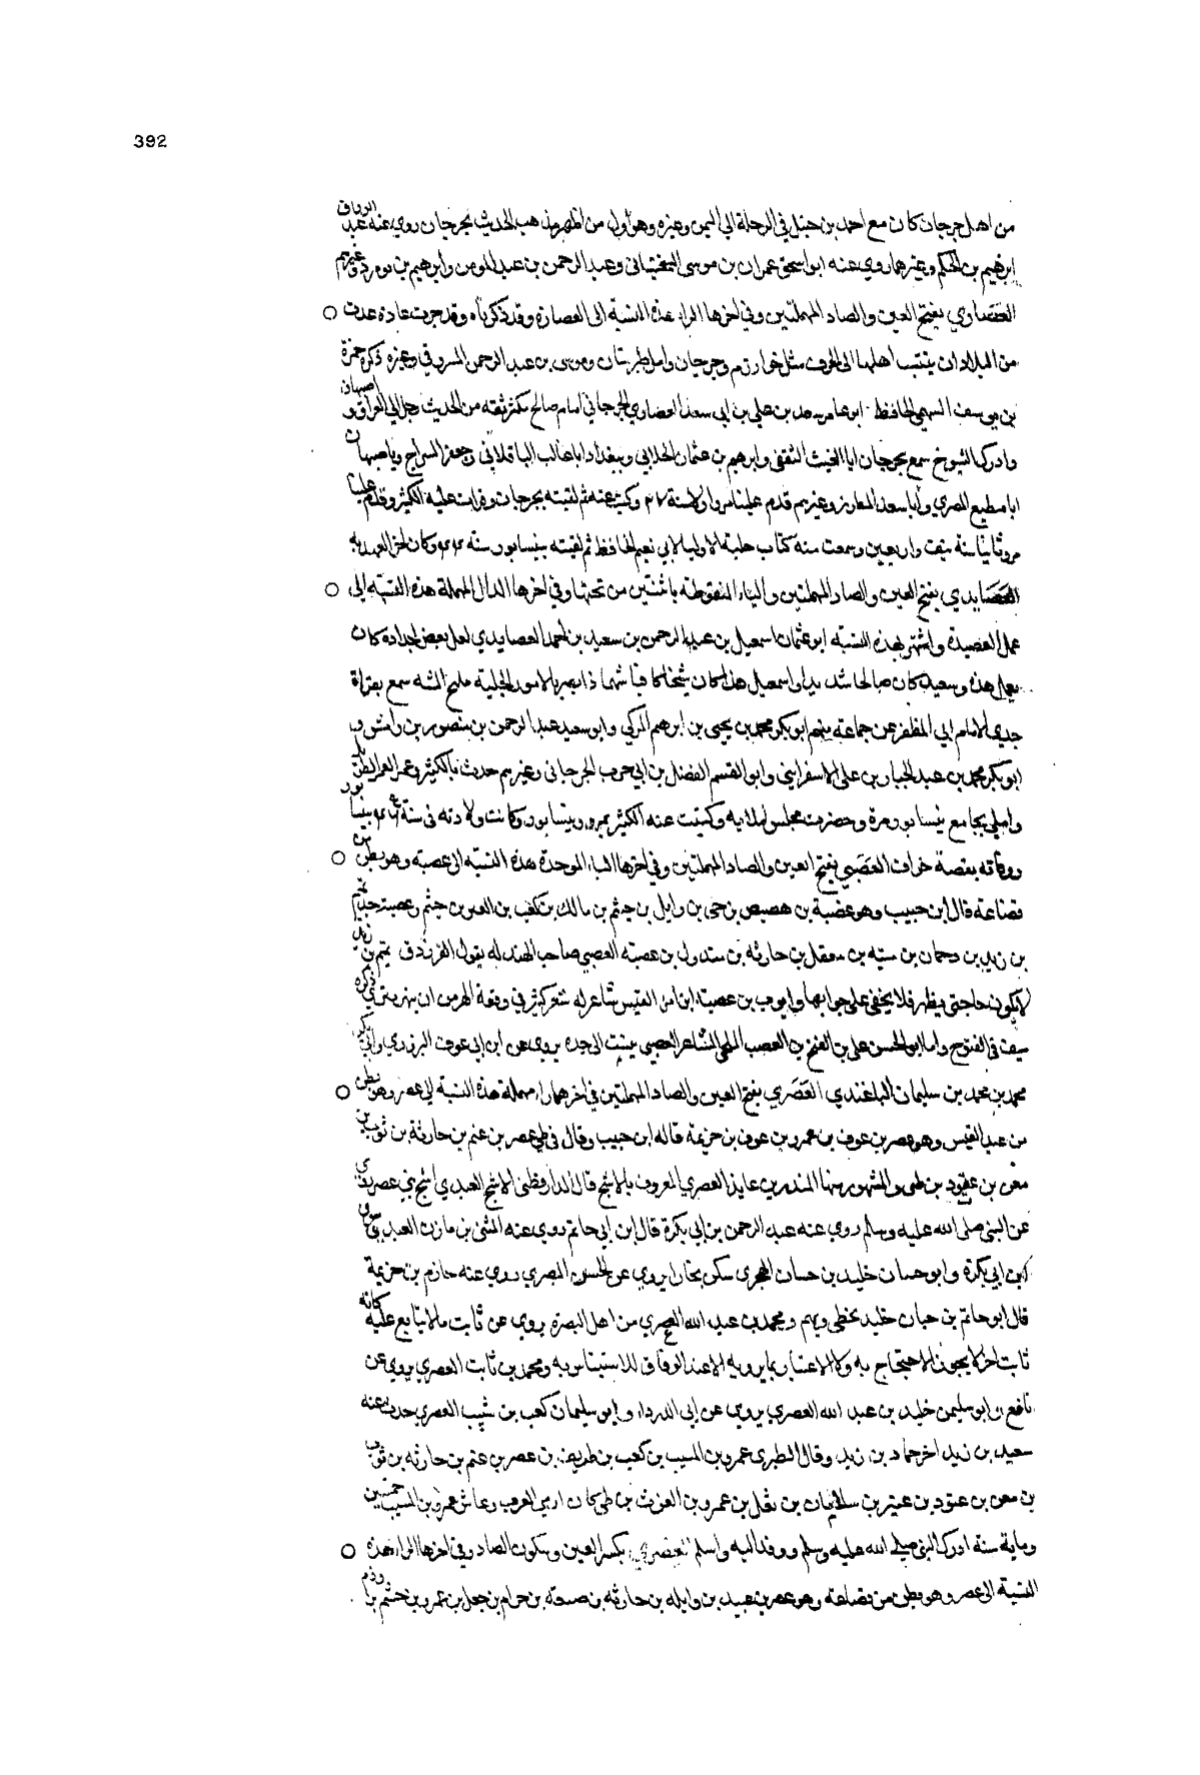 392
من اهل جرجان كان مع احمد بن حنبل في الرحلة الي اليمن وغيره وهو اول من اظهر مذهب الحديث بجرجان روي عنه عبد الرزاق
ابرهيم بن الحكم وغيرهما روي عنه ابو اسحق عمران بن موسى السختياني وعبد الرحمن بن عبد المومن وابرهيم بن وغيرهم
العصاري بفتح العين والصاد المهملتين وفي اخرها الراء هذه النسبة الى العصارة وقد ذكرناه وقد جرت عادة عدت
من البلاد ان ينتسب اهلها الى الحرف مثل خوارزم وجرجان وامل طبرستان وموسى بن عبد الرحمن وغيره ذكره حمزة
بن يوسف السهمي الحافظ ابو عامر سعد بن علي بن ابي سعد العصاري الجرجاني امام صالح مكثر ثقة من الحديث رحل الي العراق واصبهان
وادرك الشيوخ سمع بجرجان ابا الغيث الثقفي وابرهيم بن عثمان الخلالي وببغداد ابا غالب الباقلاني وجعفر السراج وباصبهان
ابا مطيع المصري وابا سعد وغيرهم قدم علينا مرو اولا سنة وكتبت عنه ثم لقيته بجرجان وقرات عليه الكثير وقدم علينا
مرو ثانيا سنة نيف واربعين وسمعت منه كتاب حلية الاوليا لابي نعيم الحافظ ثم لقيته بنيسابور سنه وكان اخر العهد به
العصايدي بفتح العين والصاد المهملتين والياء المنقوطة باثنتين من تحتها وفي اخرها الدال المهملة هذه النسبة الى
عمل العصيدة واشتهر بهذه النسبة ابو عثمان اسمعيل بن عبد الرحمن بن سعيد بن احمد العصايدي لعل بعض اجداده كان
يعمل هذه وسعيد كان صالحا اسمعيل هذا كان شيخا ذا بصر بالامور الجليلة مليح سمع بقراة
جدي الامام ابي المظفر عن جماعة منهم ابو بكر محمد بن يحيى بن ابرهيم المزكي وابو سعيد عبد الرحمن بن منصور بن رامش و
ابو بكر محمد بن عبد الجبار بن علي الاسفرايني وابو القسم الفضل بن ابي حرب الجرجاني وغيرهم حدث بالكثير وعمر العمر الطويل
واملي بجامع نيسابور مدة وحضرت مجلس املايه وكتبت عنه الكثير بمرو ونيسابور وكانت ولادته في سنة بنيسابور
ووفاته بقصبة خواف العصبي بفتح العين والصاد المهملتين وفي اخرها الباء الموحدة هذه النسبة الى عصبة وهو بطن من
قضاعة قال ابن حبيب وهو عصبة بن هصيص بن حي بن وايل بن جشم بن مالك بن كعب بن القين بن جشم وعصبة
بن زيد بن بن بن معقل بن حارثه بن بن عصبة العصبي صاحب الهند له يقول الفرزدق تميم بن زيد
لا تكون حاجتي بظهر فلا يخفى علي جوابها وايوب بن عصبة ابن امر القيس شاعر له شعر كثير في وقعة الهرمزان بنهر ذكره
سيف في الفتوح واما ابو الحسن علي بن الفتح بن العصب الملحي الشاعر العصبي ينسب الى جده يروي عن ابن ابي عوف البزوري وابي بكر
محمد بن محمد بن سليمان الباغندي العصري بفتح العين والصاد المهملتين في اخرها راء مهملة هذه النسبة الى عصر وهو بطن
من عبد القيس وهو عصر بن عوف بن عمرو بن عوف بن جزيمة قاله ابن حبيب وقال في طي عصر بن غنم بن حارثة بن ثوب بن
معن بن عتود بن طي والمشهور منها المنذر بن عايذ العصري المعروف بالاشج قال الدارقطني الاشج العبدي اشج بني عصر روي
عن النبي صلى الله عليه وسلم روي عنه عبد الرحمن بن ابي بكرة قال ابن ابي حاتم روي عنه المثنى بن مازن العبدي
ابن ابي بكرة وابو حسان خليد بن حسان الهجري سكن بخارا يروي عن الحسن البصري روي عنه حازم بن خزيمة
قال ابو حاتم بن حبان خليد يخطي ويهم ومحمد بن عبد الله العصري من اهل البصرة يروي عن ثابت مالا يتابع عليه كانه
ثابت اخر لا يجوز الاحتجاج به ولا الاعتبار بما يرويه الا عند الوفاق للاستيناس به ومحمد بن ثابت العصري يروي عن
نافع وابو سليمن خليد بن عبد الله العصري يروي عن ابي الدرداء وابو سليمان كعب بن شبيب العصري حدث عنه
سعيد بن زيد اخو حماد بن زيد وقال الطبري عمرو بن المسيب بن كعب بن طريف بن عصر بن غنم بن حارثه بن ثوب
بن معن بن عتود بن عنيز بن سلامان بن ثعل بن عمرو بن الغوث بن طي كان ارمي العرب وعاش عمرو بن المسيب خمسين
وماية سنة ادرك النبي صلى الله عليه وسلم ووفد اليه واسلم العصري بكسر العين وسكون الصاد وفي اخرها الراء هذه
النسبة الى عصر وهو بطن من قضاعة وهو عصر بن عبيد بن وايله بن حارثه بن ضبعه بن حرام بن جعل بن عمرو بن جشم بن